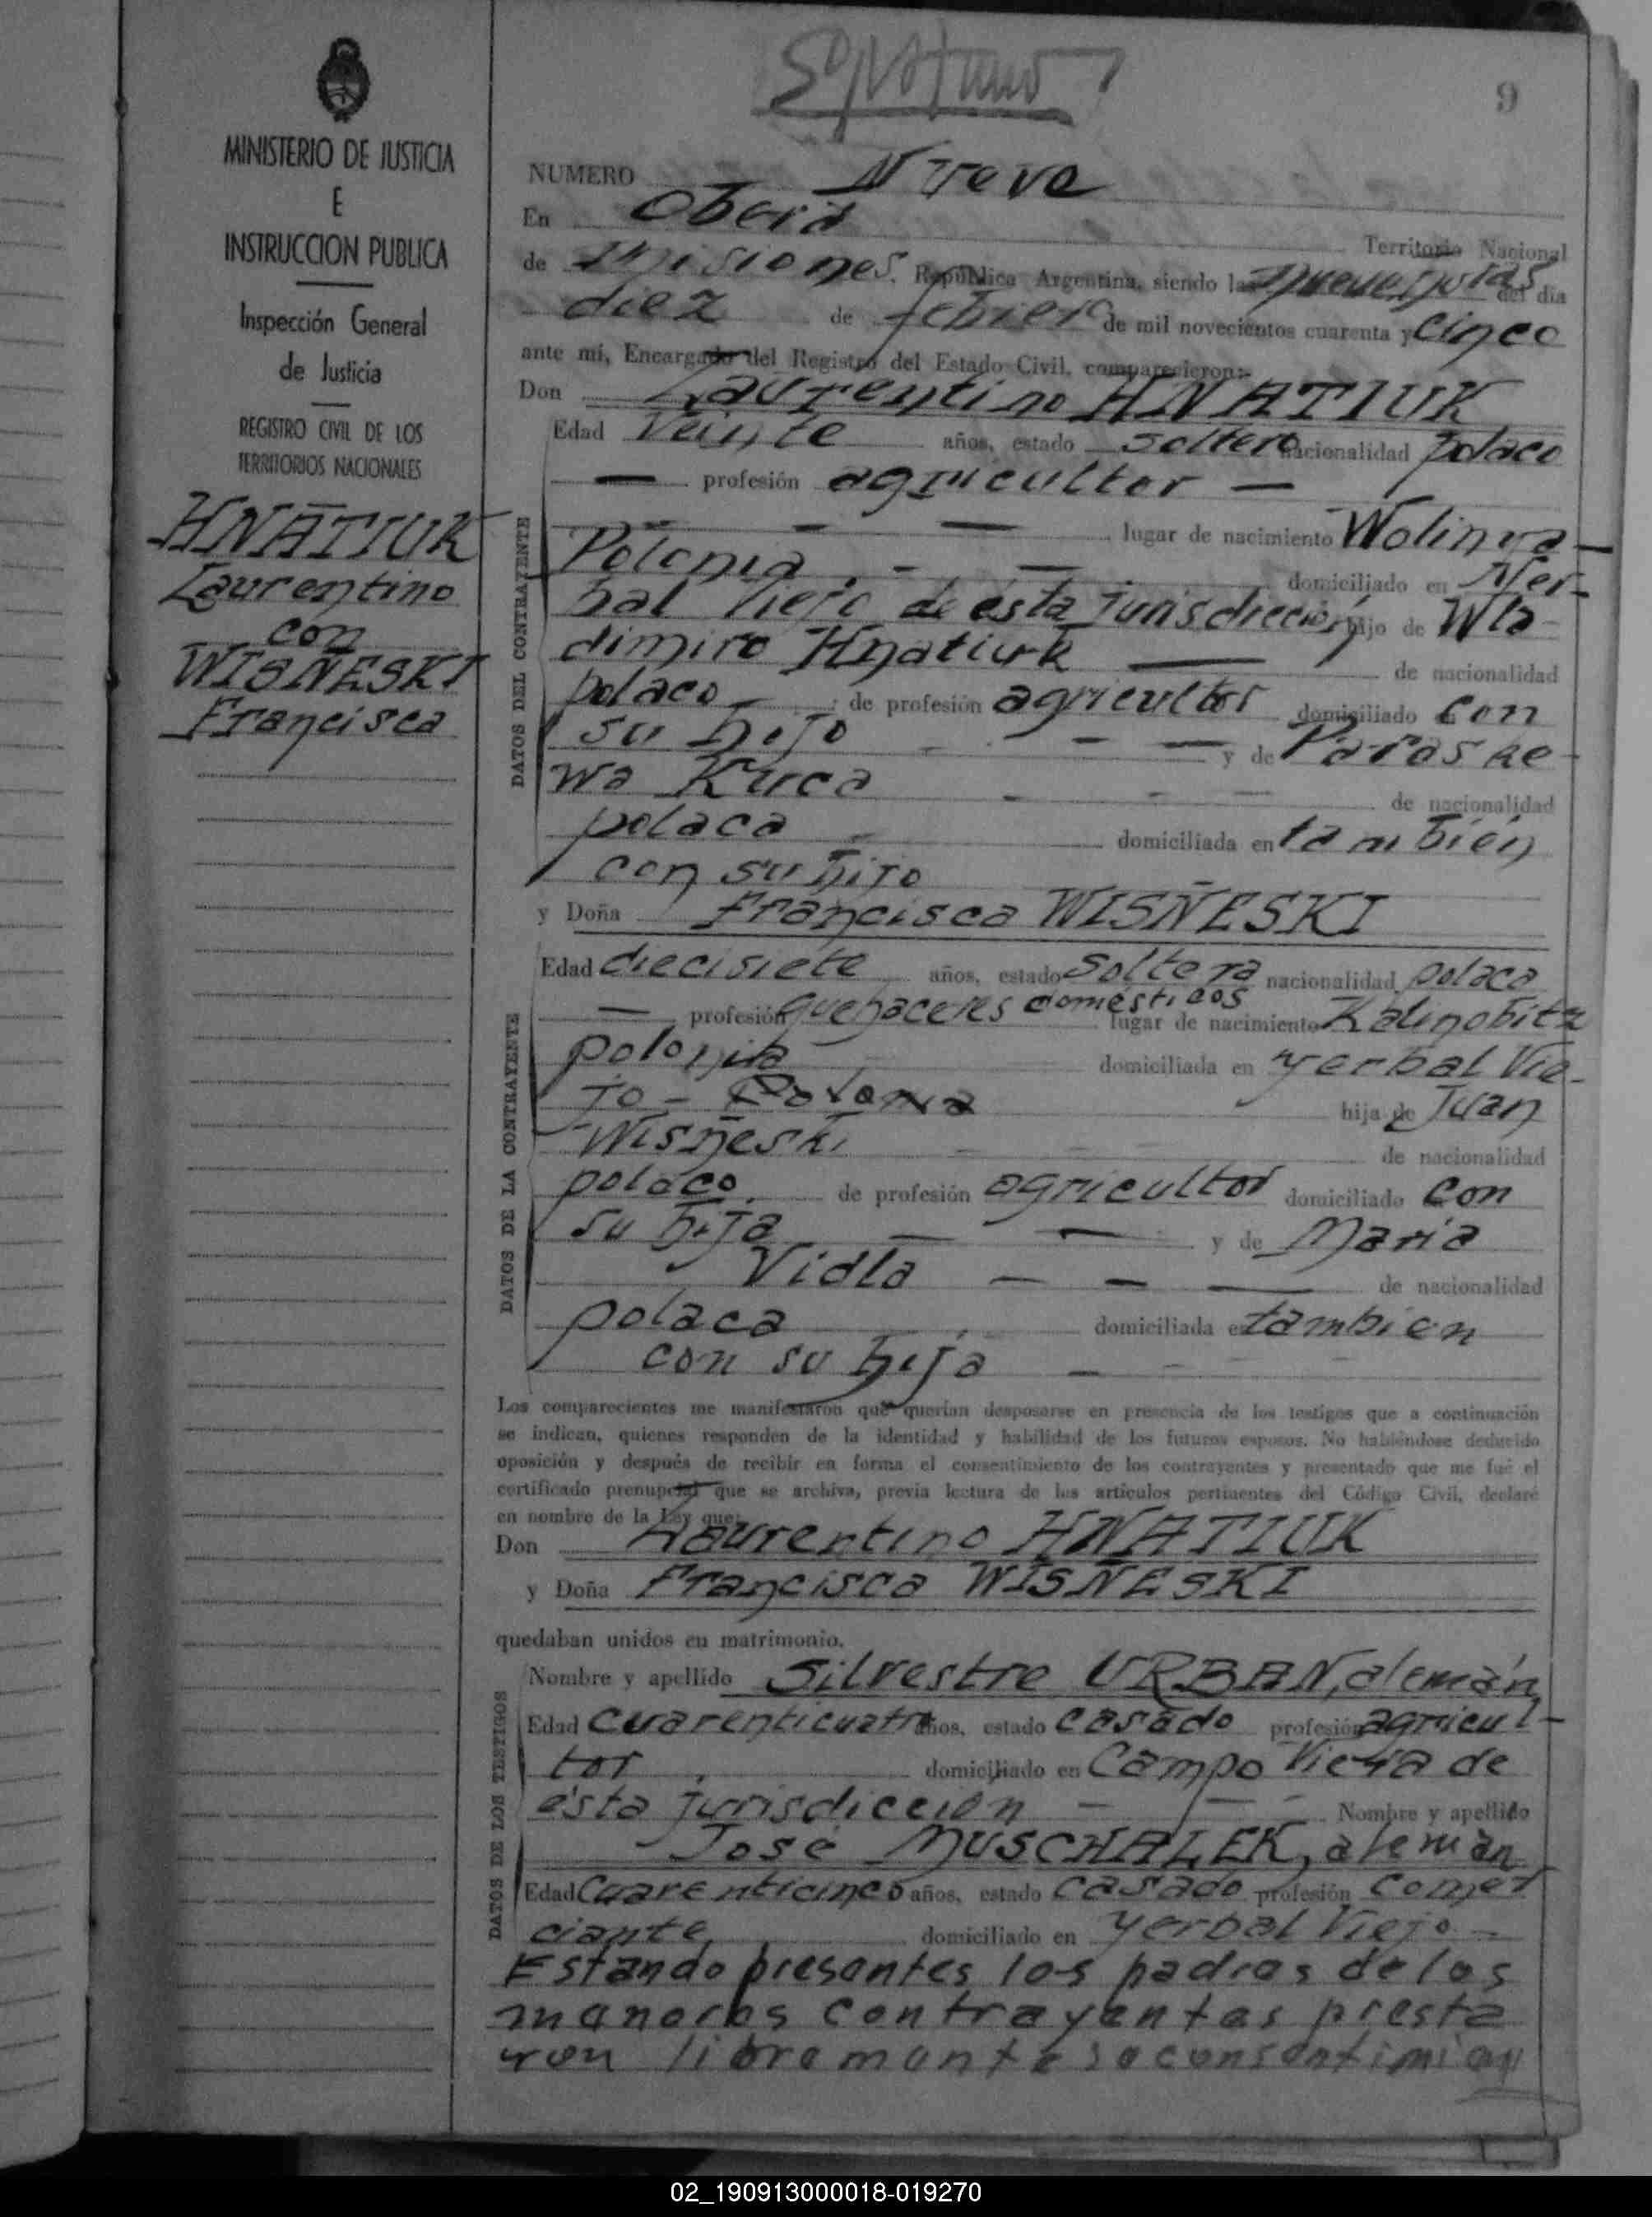 9
MINISTERIO DE JUSTICIA
E
INSTRUCCION PUBLICA
Inspección General
de Justicia
REGISTRO CIVIL DE LOS
TERRITORIOS NACIONALES
HNATIUK
Laurentino
con
WISÑESKI
Francisca
NUMERO Nueve
En Oberá Territorio Nacional
de Misiones, República Argentina, siendo las nueve horas del día
diez de febrero de mil novecientos cuarenta y cinco
ante mí, Encargado del Registro del Estado Civil, comparecieron:-
Don Laurentino HNATIUK
DATOS DEL CONTRAYENTE
Edad Veinte años, estado soltero nacionalidad polaco
— profesión agricultor —
— — lugar de nacimiento Wolinya —
Polonia, - — domiciliado en Yer-
bal Viejo de ésta jurisdicción, hijo de Wla-
dimiro Hnatiuk — de nacionalidad
polaco — de profesión agricultor domiciliado con
su hijo - - — y de Paraske-
wa Kuca - - — de nacionalidad
polaca domiciliada en también
con su hijo
y Doña Francisca WISÑESKI
DATOS DE LA CONTRAYENTE
Edad diecisiete años, estado soltera nacionalidad polaca
— profesión quehaceres domésticos lugar de nacimiento Kalinobitz
polonia domiciliada en yerbal Vie-
jo - hija de Juan
Wisñeski - — de nacionalidad
polaco, de profesión agricultor domiciliado con
su hija — — y de María
Vidla — — — de nacionalidad
polaca domiciliada en tambien
con su hija —
Los comparecientes me manifestaron que querían desposarse en presencia de los testigos que a continuación
se indican, quienes responden de la identidad y habilidad de los futuros esposos. No habiéndose deducido
oposición y después de recibir en forma el consentimiento de los contrayentes y presentado que me fué el
certificado prenupcial que se archiva, previa lectura de los artículos pertinentes del Código Civil, declaré
en nombre de la Ley que:
Don Laurentino HNATIUK
y Doña Francisca WISÑESKI
quedaban unidos en matrimonio.
DATOS DE LOS TESTIGOS
Nombre y apellido Silvestre URBAN, alemán
Edad Cuarenticuatro años, estado casado profesión agricul-
tor, domiciliado en Campo Viera de
ésta jurisdicción - — - Nombre y apellido
José MUSCHALEK, alemán
Edad Cuarenticinco años, estado casado profesión comer
ciante domiciliado en yerbal Viejo —
Estando presentes los padres de los
menores contrayentes presta
ron libremente so consentimien
02_190913000018-019270